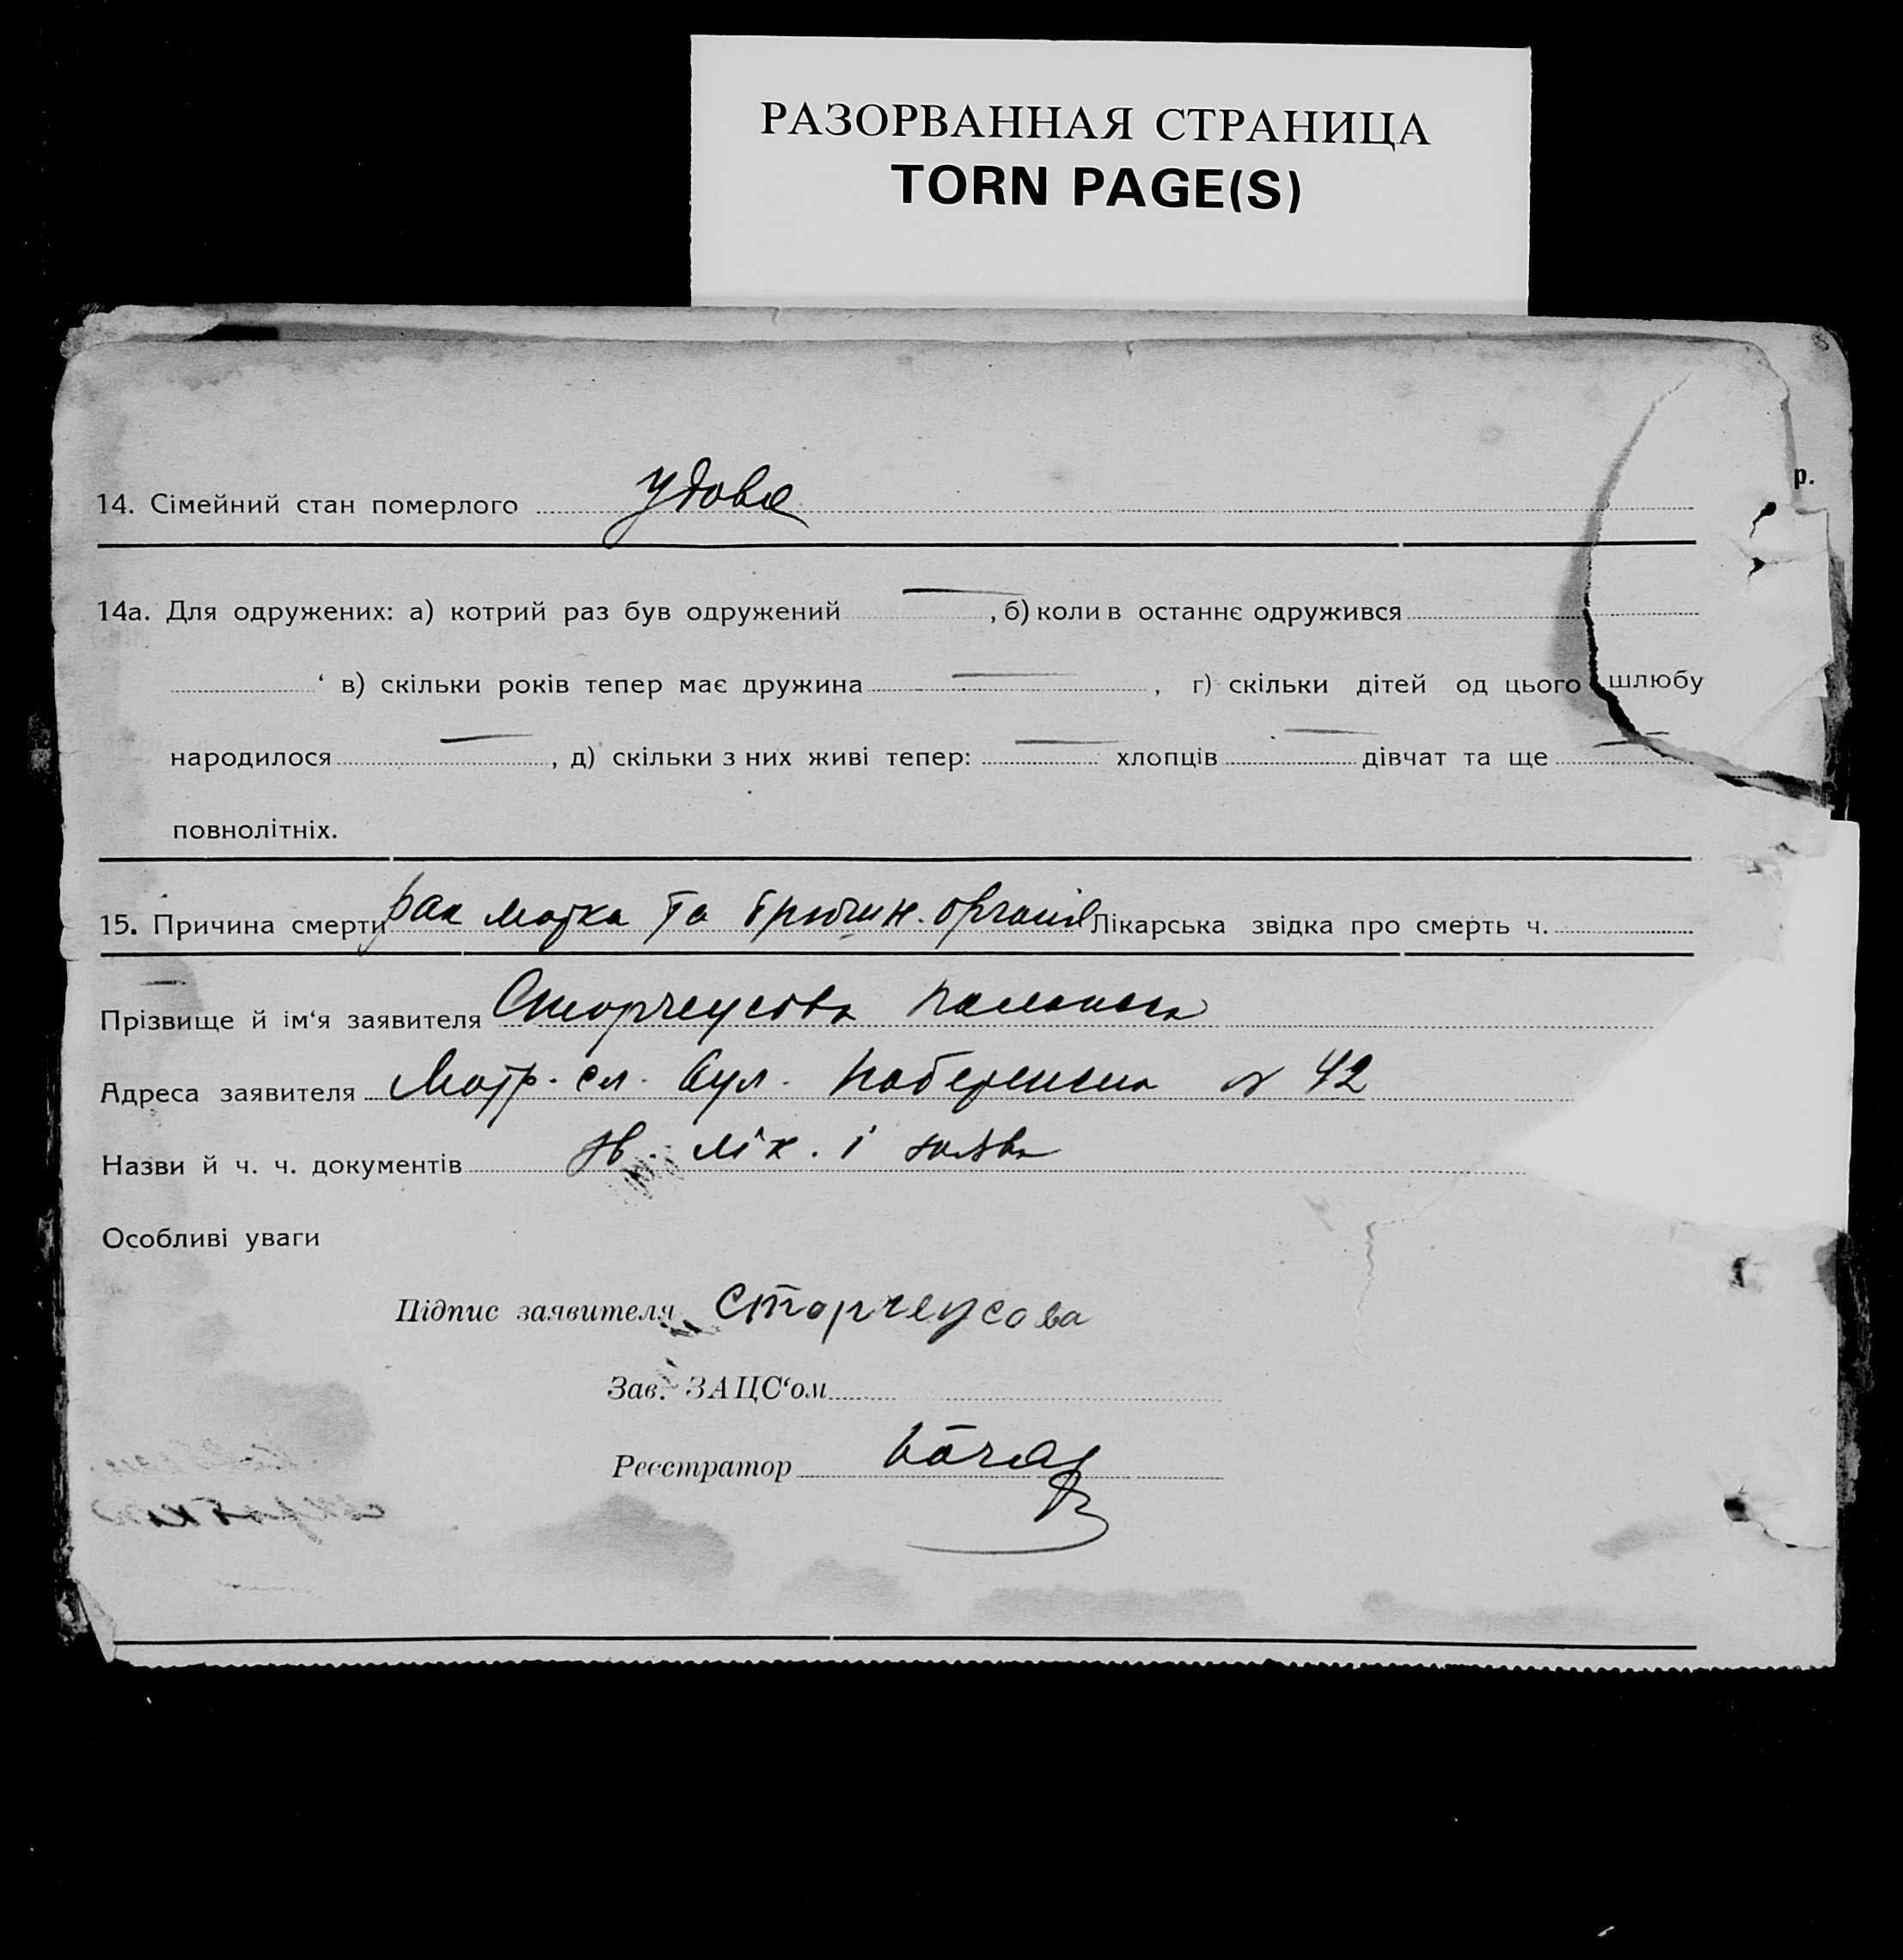 РАЗОРВАННАЯ СТРАНИЦА
TORN PAGE(S)
р.
14. Сімейний стан померлого удова
14а. Для одружених: а) котрий раз був одружений —, б) коли в останнє одружився
‘ в) скільки років тепер має дружина —, г) скільки дітей од цього шлюбу
народилося —, д) скільки з них живі тепер: — хлопців — дівчат та ще —
повнолітніх.
15. Причина смерти рак матки та брюшн. органів Лікарська звідка про смерть ч.
—
Прізвище й ім‘я заявителя Сторчеусова
Адреса заявителя Мотр. сл. вул. Набережна № 42
Назви й ч. ч. документів зв. лік. і заява
Особливі уваги
Підпис заявителя Сторчеусова
Зав. ЗАЦС‘ом
Реєстратор